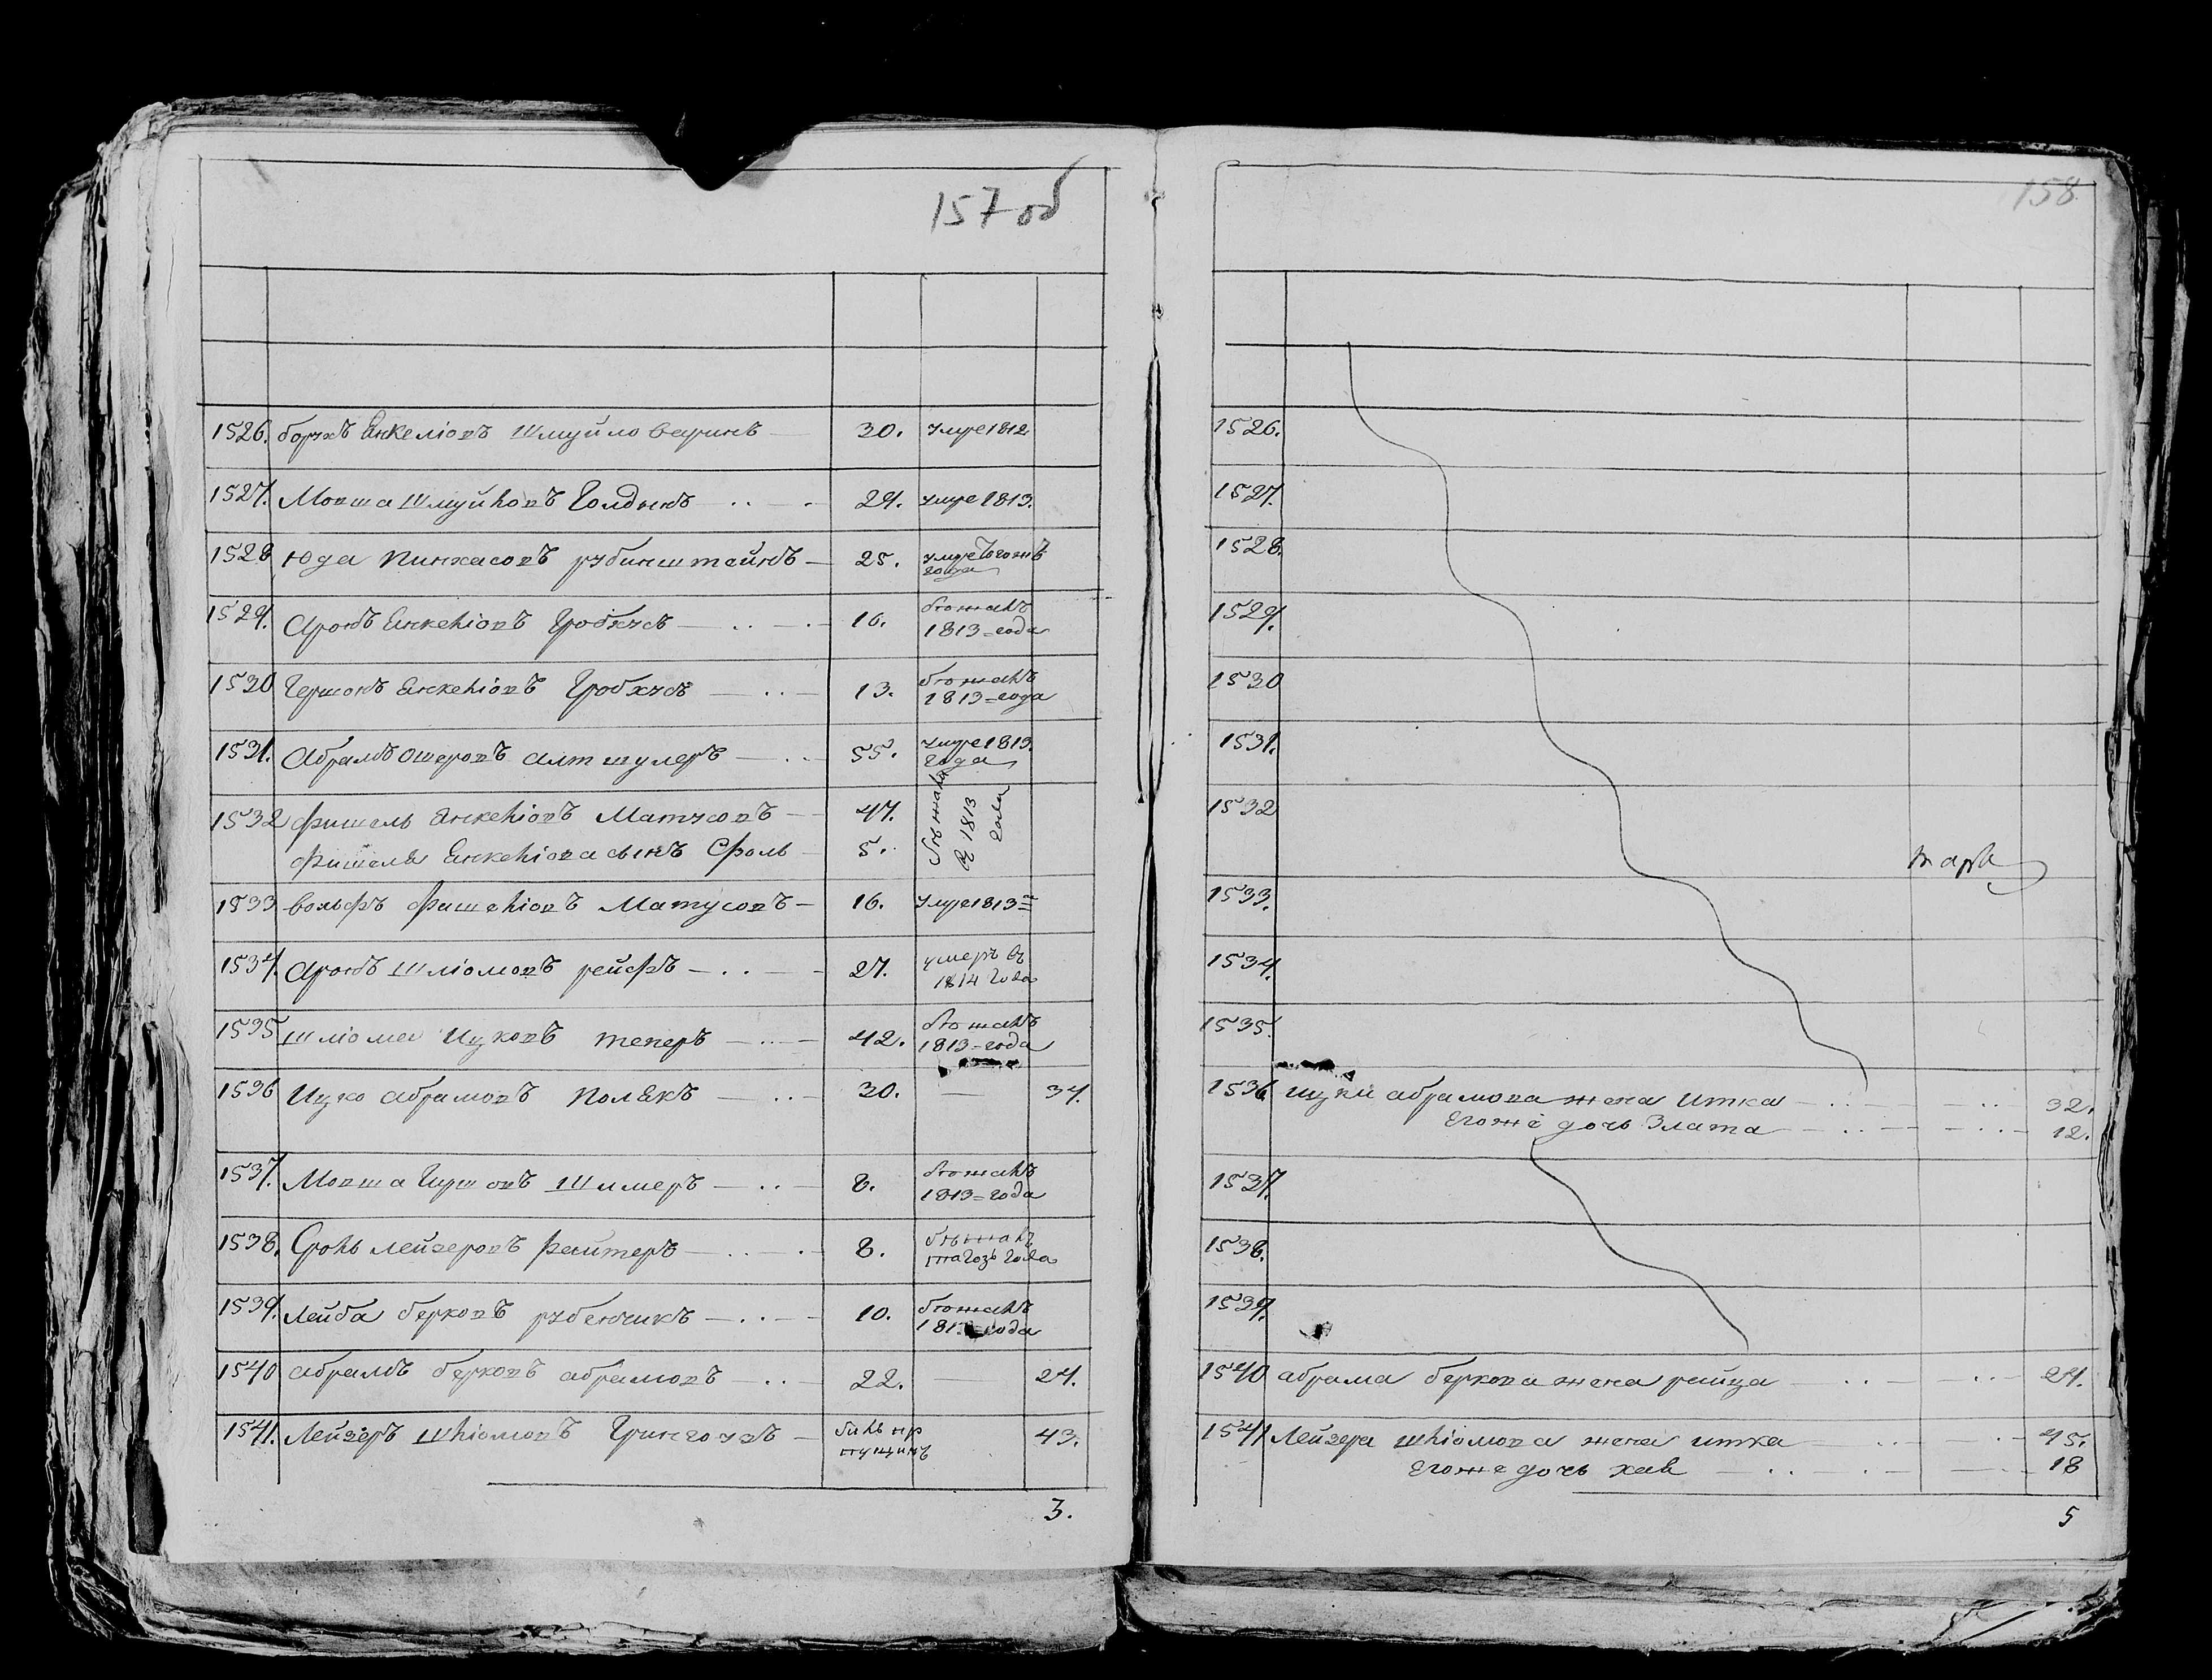 157 об
1526. борухъ Янкеліовъ Шмуйловечинъ 30. умре 1812
1527. Мовша Шмуйловъ Голдынъ 24. умре 1813.
1528 Юда Пинхасовъ рубинштейнъ 25. умре тогожъ
года
1529. Аронъ Янкеліовъ 16. бѣжалъ
1813 = года
1530 Гершонъ Янкеліовъ 13. бѣжалъ
1813 = года
1531. Абрамъ Ошеровъ алтшулеръ 55. умре 1813.
года
1532 Фишель Янкеліовъ Матусовъ 47. бѣжалъ
въ 1813
года
Фишеля Янкеліова сынъ Сроль 5.
1533 вольфъ Фишеліовъ Матусовъ 16. умре 1813
1534. Аронъ Шліомовъ рейфъ 27. умеръ въ
1814 года
1535 Шліома Ицковъ теперъ 42. бѣжалъ
1813 = года
1536 Ицко абрамовъ Полякъ 30. — 34.
1537. Мовша Гершовъ Шимеръ 8. бѣжалъ
1813 = года
1538. Сроль лейзеровъ райтеръ 8. бѣжалъ
года
1539. Лейба берковъ рубенчикъ 10. бѣжалъ
года
1540 абрамъ берковъ абрамовъ 22. — 24.
1541. Лейзеръ Шліомовъ 43.
3.
158
1526.
1527.
1528.
1529.
1530
1531.
1532
1533.
1534.
1535.
1536. ицки абрамова жена итка 32.
Егоже дочь Злата 12.
1537.
1538.
1539.
1540 абрама беркова жена рейза 24.
1541 Лейзера шліомова жена итка 45.
Егоже дочь хая 18
5